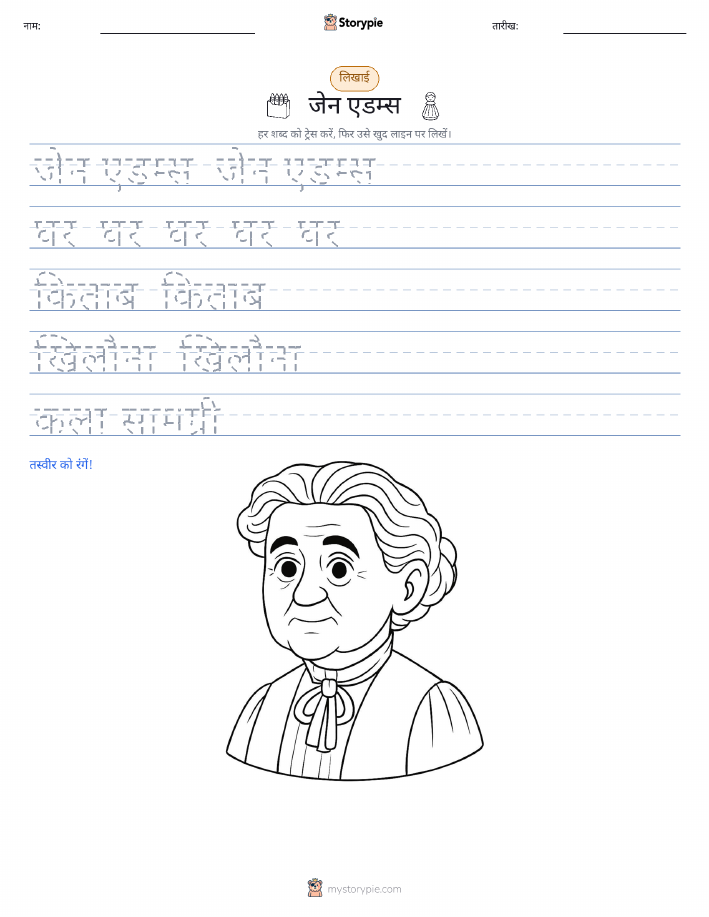 नाम: Storypie तारीख:
लिखाई
जेन एडम्स
हर शब्द को ट्रेस करें, फिर उसे खुद लाइन पर लिखें।
जेन एडम्स जेन एडम्स
घर घर घर घर घर
किताब किताब
खिलौना खिलौना
कला सामग्री
तस्वीर को रंगें!
mystorypie.com